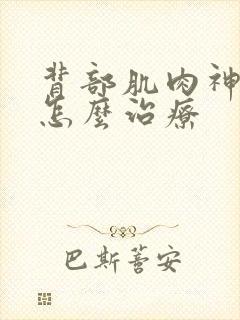 背部肌肉神
怎麼治療
巴斯善安